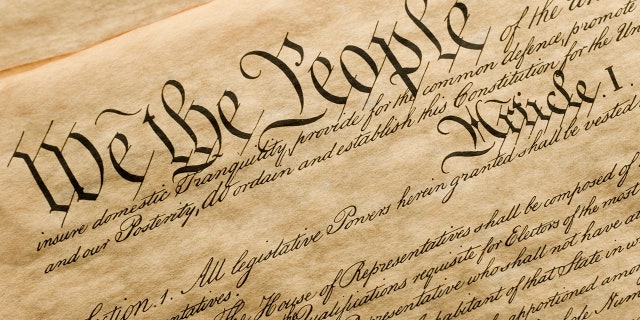 We the People of the
insure domestic Tranquility, provide for the common defence, promote
and our Posterity, do ordain and establish this Constitution for the Uni
Article. I.
ction. 1. All legislative Powers herein granted shall be vested
entatives.
The House of Representatives shall be composed of
Qualifications requisite for Electors of the most
Representative who shall not have a
habitant of that State in w
apportioned amon
Num